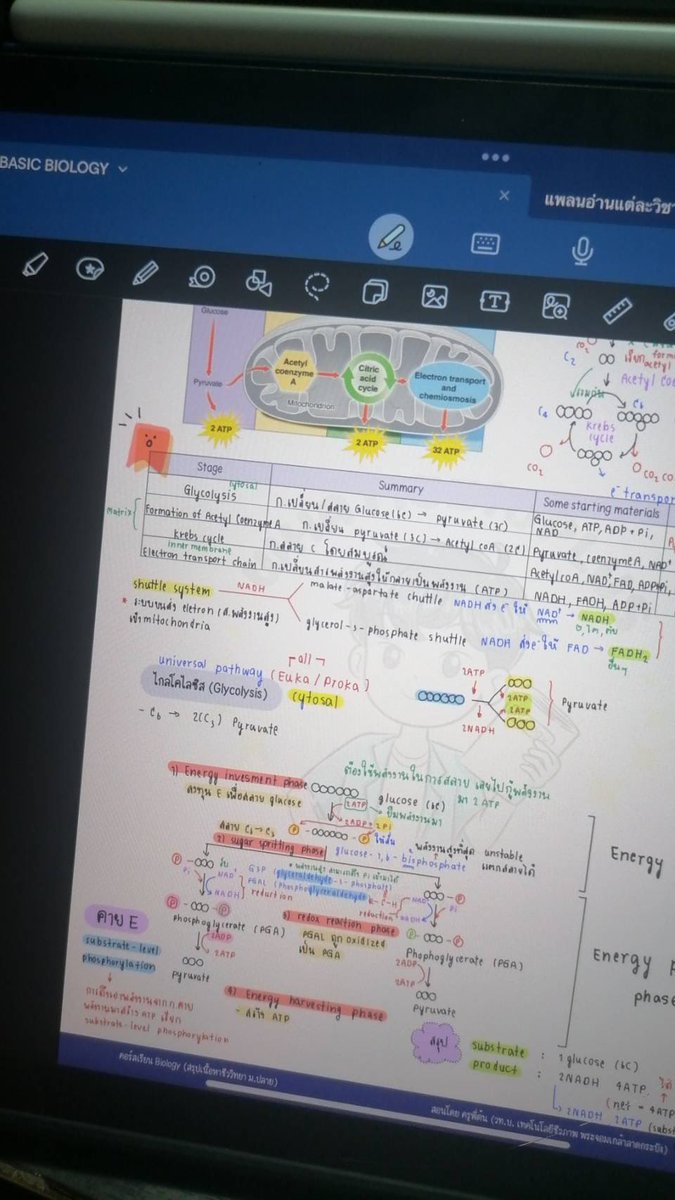 BASIC BIOLOGY
แพลนอ่านแต่ละวิชา
Glucose
Pyruvate
Acetyl coenzyme A
Citric acid cycle
Electron transport and chemiosmosis
Mitochondrion
2 ATP
2 ATP
32 ATP
CO₂
C₂
Acetyl Coe
C₄
C₆
krebs cycle
CO₂
CO₂ CO₂
e⁻ transpor
Stage
Summary
Some starting materials
cytosal
Glycolysis
ก.เปลี่ยน/สลาย Glucose(6c) → pyruvate (3c)
Glucose, ATP, ADP + Pi, NAD
matrix
Formation of Acetyl Coenzyme A
ก.เปลี่ยน pyruvate (3c) → Acetyl coA (2c)
Pyruvate, coenzyme A, NAD⁺
krebs cycle
ก.สลาย c โดยสมบูรณ์
Acetyl coA, NAD⁺, FAD, ADP+Pi
inner membrane
Electron transport chain
NADH, FADH, ADP+Pi
shuttle system
NADH
malate-aspartate chuttle NADH ส่ง e⁻ ให้ NAD⁺ → NADH
* ระบบขนส่ง eletron
เข้า mitochondria
glycerol-3-phosphate shuttle NADH ส่ง e⁻ ให้ FAD → FADH₂
อื่นๆ
universal pathway
all
(Euka / Proka)
ไกลโคไลซิส (Glycolysis)
cytosal
- C₆ → 2(C₃) Pyruvate
2ATP
2ATP
2ATP
2NADH
Pyruvate
ต้องใช้พลังงานในการสลาย
มา 2 ATP
1) Energy invesment phase
ลงทุน E เพื่อสลาย glucose
glucose (6c)
2ATP
ยืมพลังงานมา
2ADP + 2Pi
สลาย C₆ → C₃
พลังงานสูงที่สุด unstable
แตกสลายได้
2) sugar spritting phase
glucose-1,6-bisphosphate
Energy
P
Pi
NAD⁺
NADH
reduction
G3P (glyceraldehyde-3-phosphate)
PGAL (Phosphoglyceraldehyde)
reduction
NAD⁺
NADH
Pi
phosphoglycerate (PGA)
3) redox reaction phase
PGAL ถูก oxidized
เป็น PGA
Phophoglycerate (PGA)
คาย E
2ADP
2ATP
2ADP
2ATP
substrate-level
phosphorylation
Pyruvate
Pyruvate
4) Energy harvesting phase
- สร้าง ATP
Energy
phase
substrate-level phosphorylation
สรุป
substrate : 1 glucose (6C)
product : 2NADH 4ATP
(net = 4ATP
2NADH 2ATP
คอร์สเรียน Biology (สรุปเนื้อหาชีววิทยา ม.ปลาย)
สอนโดย ครูพี่ต้น (วท.บ. เทคโนโลยีชีวภาพ พระจอมเกล้าลาดกระบัง)